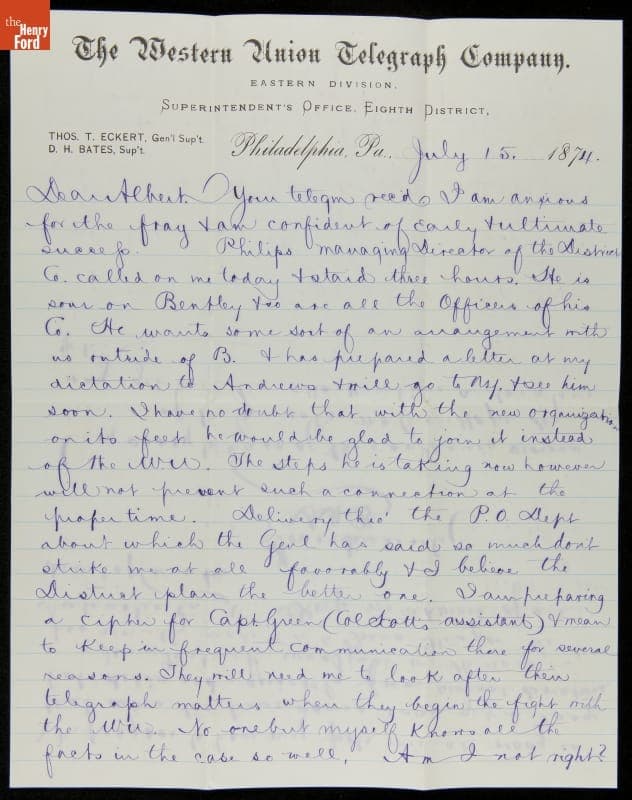 the
Henry
Ford
The Western Union Telegraph Company.
EASTERN DIVISION.
SUPERINTENDENT'S OFFICE, EIGHTH DISTRICT,
THOS. T. ECKERT, Gen'l Sup't.
D. H. BATES, Sup't.
Philadelphia, Pa., July 15. 1874.
Dear Albert. Your telegm recd. I am anxious
for the fray & am confident of early & ultimate
success. Philips managing Director of the District
Co. called on me today & staid three hours. He is
sour on Bentley & so are all the Officers of his
Co. He wants some sort of an arrangement with
us outside of B. & has prepared a letter at my
dictation to Andrews & will go to NY. & see him
soon. I have no doubt that with the new organization
on its feet he would be glad to join it instead
of the WU. The steps he is taking now however
will not prevent such a connection at the
proper time. Delivery thro' the P.O. Dept
about which the Genl has said so much don't
strike me at all favorably & I believe the
District plan the better one. I am preparing
a cipher for Capt Green (Col assistant) & mean
to keep in frequent communication there for several
reasons. They will need me to look after their
telegraph matters when they begin the fight with
the WU. No one but myself knows all the
facts in the case so well. Am I not right?